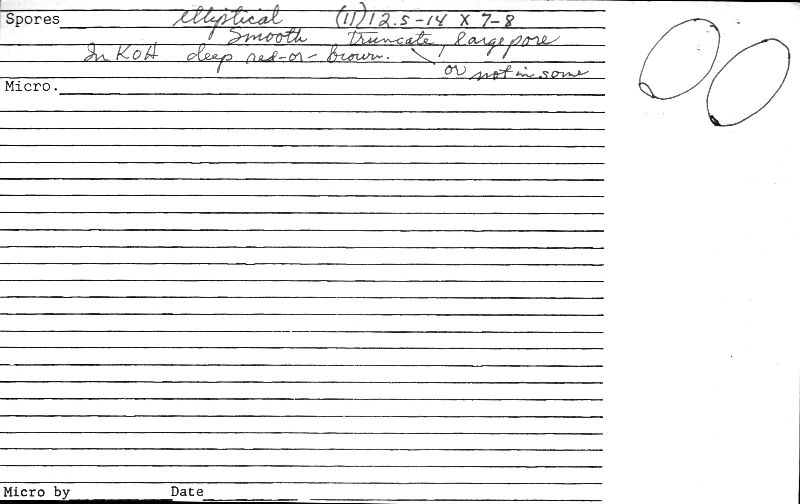 Spores elliptical (11)12.5-14 X 7-8
Smooth truncate, large pore
In KOH deep red-or-brown.
or not in some
Micro.
Micro by Date